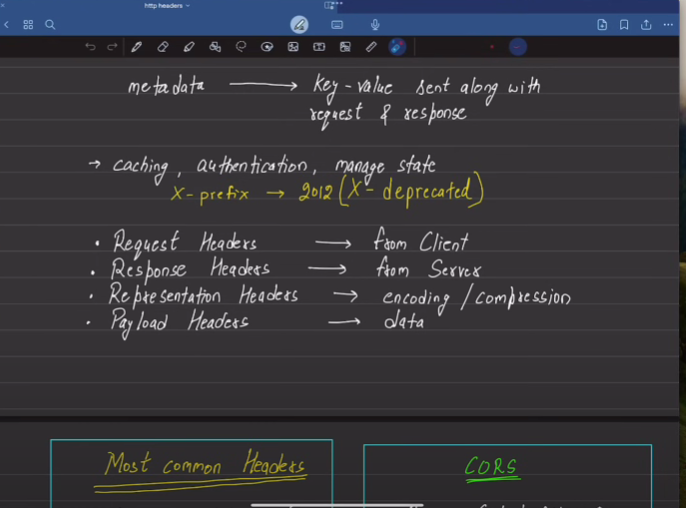 http headers
metadata → key-value sent along with
request & response
→ caching, authentication, manage state
X-prefix → 2012 (X-deprecated)
• Request Headers → from Client
• Response Headers → from Server
• Representation Headers → encoding/compression
• Payload Headers → data
Most common Headers
CORS